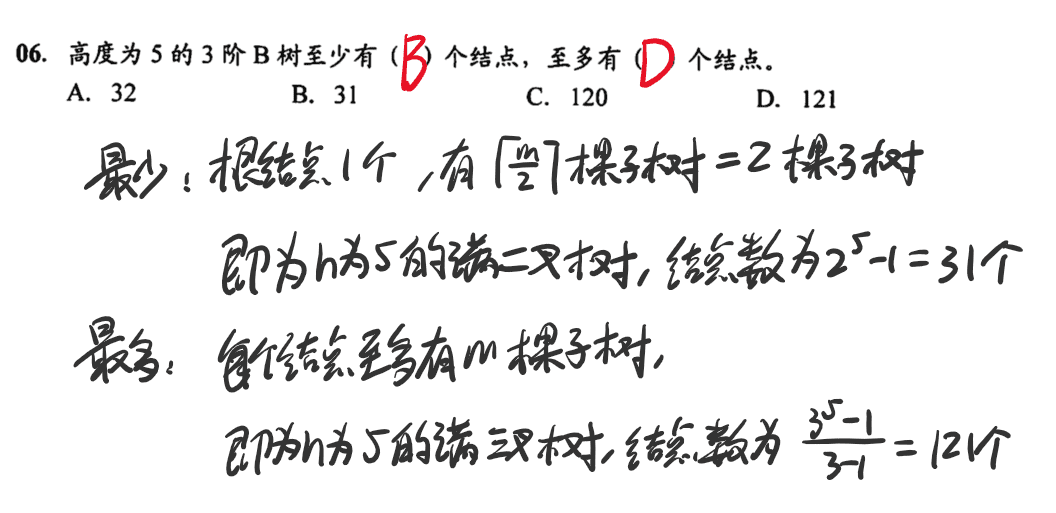 06. 高度为 5 的 3 阶 B 树至少有 (B) 个结点，至多有 (D) 个结点。
A. 32 B. 31 C. 120 D. 121
最少：根结点1个，有⌈m/2⌉棵子树=2棵子树
即为h为5的满二叉树，结点数为2⁵-1=31个
最多：每个结点至多有m棵子树，
即为h为5的满三叉树，结点数为 (3⁵-1)/(3-1) = 121个